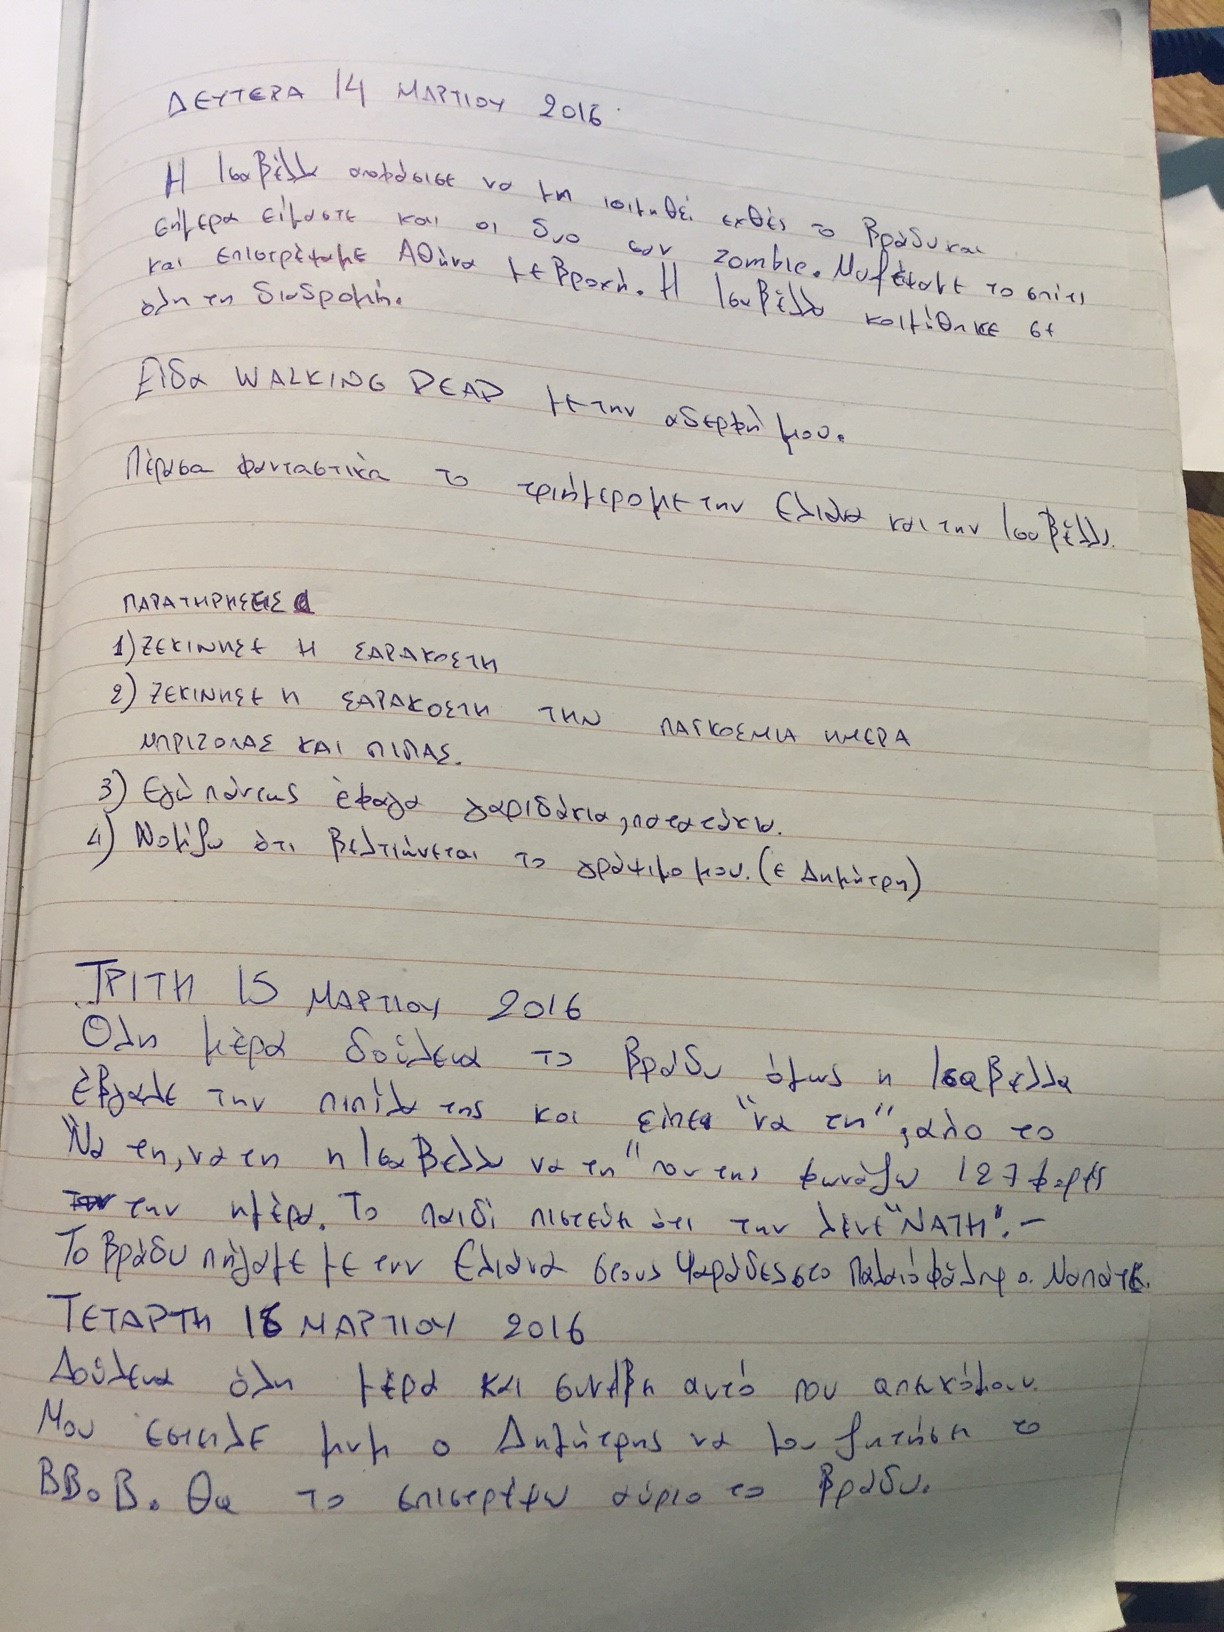 ΔΕΥΤΕΡΑ 14 ΜΑΡΤΙΟΥ 2016
Η Ισαβέλλα αποφάσισε να μη κοιμηθεί εχθές το βράδυ και
σήμερα είμαστε και οι δυο σαν zombie. Μαζέψαμε το σπίτι
και επιστρέψαμε Αθήνα με βροχή. Η Ισαβέλλα κοιμήθηκε σε
όλη τη διαδρομή.
Είδα WALKING DEAD με την αδερφή μου.
Πέρασα φανταστικά το τριήμερο με την Ελιάνα και την Ισαβέλλα.
ΠΑΡΑΤΗΡΗΣΕΙΣ
1) ΞΕΚΙΝΗΣΕ Η ΣΑΡΑΚΟΣΤΗ
2) ΞΕΚΙΝΗΣΕ Η ΣΑΡΑΚΟΣΤΗ ΤΗΝ ΠΑΓΚΟΣΜΙΑ ΗΜΕΡΑ
ΜΠΡΙΖΟΛΑΣ ΚΑΙ ΠΙΠΑΣ.
3) Εγώ πάντως έφαγα γαριδάκια, πατατάκια.
4) Νομίζω ότι βελτιώνεται το γράψιμο μου. (ε Δημήτρη)
ΤΡΙΤΗ 15 ΜΑΡΤΙΟΥ 2016
Όλη μέρα δούλεια το βράδυ όμως η Ισαβέλλα
έβγαλε την πιπίλα της και είπε "να τη", από το
"Να τη, να τη η Ισαβέλλα να τη" που της φωνάζω 127 φορές
την ημέρα. Το παιδί πιστεύει ότι την λένε "ΝΑΤΗ". –
Το βράδυ πήγαμε με την Ελιάνα στους Ψαράδες στο Παλαιό Φάληρο.
ΤΕΤΑΡΤΗ 16 ΜΑΡΤΙΟΥ 2016
Δούλεια όλη μέρα και συνέβη αυτό που απευχόμουν.
Μου έστειλε μνμ ο Δημήτρης να μου ζητήσει το
ΒΒ.Β. Θα το επιστρέψω αύριο το βράδυ.